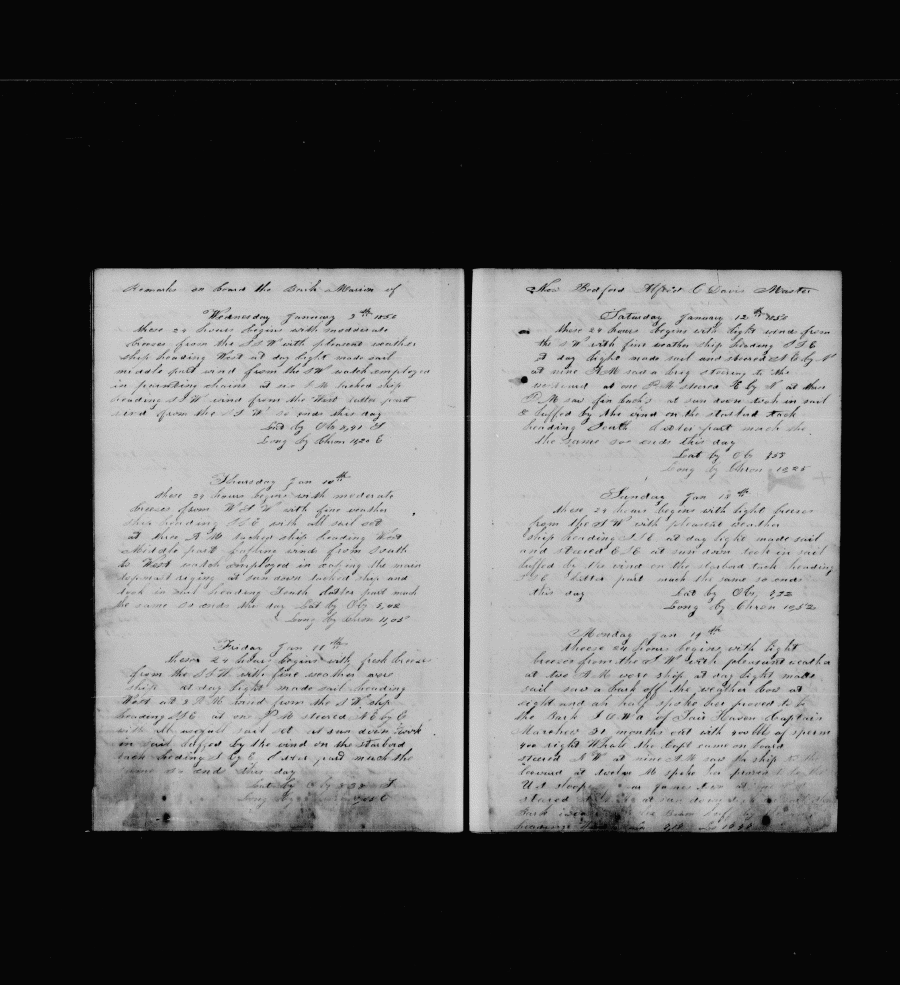 Remarks on board the Bark Marion of
Wednesday January 9th 1856
these 24 hours begins with modderate
breeses from the S S W with pleasent weather
ship heading West at day light made sail
middle part wind from the SW watch employed
in at six A M tacked ship
heading S W wind from the West latter part
wind from the W S W so ends this day
Lat by Ob 5,41 S
Long by Chron 11,20 E
Thursday Jan 10th
these 24 hours begins with moderate
breeses from W S W with fine weather
ship heading S S E with all sail set
at three A M tacked ship heading West
Middle part baffling wind from South
to West watch employed in the main
topmast riging at sun down tacked ship and
took in sail heading South latter part much
the same so ends the day Lat by Ob 5,42
Long by Chron 11,05
Friday Jan 11th
theses 24 hours begins with fresh breese
from the S S W with fine weather
ship at day light made sail heading
West at 3 P M wind from the S W ship
heading at one P M steered N E by E
with all sail set at sun down took
in sail luffed by the wind on the starbord
tack heding S by E latter part much the
same so ends this day
Lat by Ob S
Long by E
New Bedford C Davis Master
Saturday January 12th 1856
these 24 hours begins with light wind from
the S W with fine weather ship heading S S E
at day light made sail and steered N E by N
at nine A M saw a brig steering to the
westward at one P M steered E by N at three
P M saw fin backs at sun down took in sail
& luffed by the wind on the starbord tack
heading South latter part much the
the same soo ends this day
Lat by Ob
Long by Chron 10,25
Sunday Jan 13th
these 24 hours begins with light breeses
from the S W with pleasent weather
ship heading S S E at day light made sail
and steered E S E at sun down took in sail
luffed by the wind on the starbord tack heading
S S E latter part much the same so ends
this day Lat by Ob,
Long by Chron 10,52
Monday Jan 14th
theese 24 hours begins with light
breeses from the S W with pleasent weather
at two A M wore ship at day light made
sail saw a bark off the weather bow at
eight and an half spoke her proved to be
the Bark of Fair Haven Captain
31 months out with 400 bbl of sperm
400 right Whale the Capt came on board
steered N W at nine A M saw a ship to the
leeward at twelve M spoke her proved to be the
U S sloop at
steered at sun down
Bark
heading